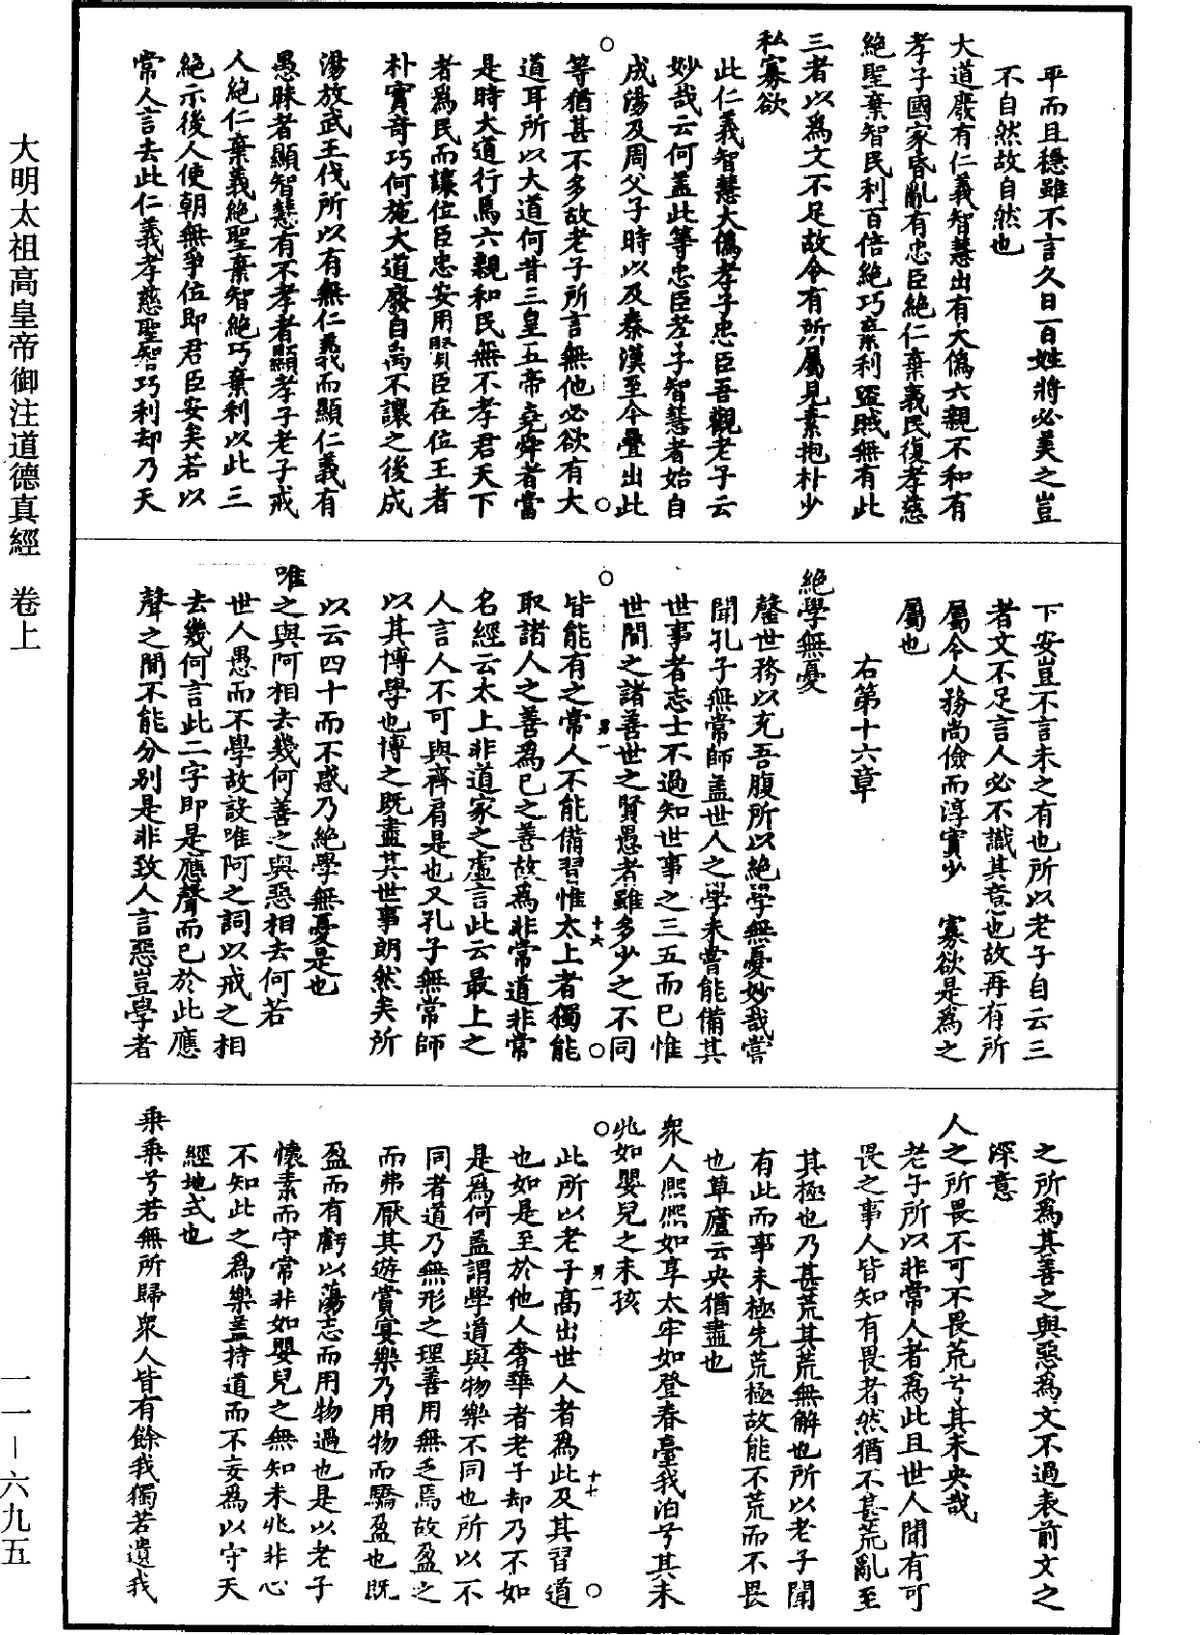 平而且穩雖不言久日百姓將必美之豈
不自然故自然也
大道廢有仁義智慧出有大偽六親不和有
孝子國家昏亂有忠臣絕仁棄義民復孝慈
絕聖棄智民利百倍絕巧棄利盜賊無有此
三者以為文不足故令有所屬見素抱朴少
私寡欲
此仁義智慧大偽孝子忠臣吾觀老子云
妙哉云何盖此等忠臣孝子智慧者始自
成湯及周父子時以及秦漢至今疊出此
等猶甚不多故老子所言無他必欲有大
道耳所以大道何昔三皇五帝堯舜者當
是時大道行焉六親和民無不孝君天下
者為民而讓位臣忠安用賢臣在位王者
朴實奇巧何施大道廢自禹不讓之後成
湯放武王伐所以有無仁義而顯仁義有
愚昧者顯智慧有不孝者顯孝子老子戒
人絕仁棄義絕聖棄智絕巧棄利以此三
絕示後人使朝無爭位即君臣安矣若以
常人言去此仁義孝慈聖智巧利却乃天
下安豈不言未之有也所以老子自云三
者文不足言人必不識其意也故再有所
屬令人務尚儉而淳實少 寡欲是為之
屬也
右第十六章
絕學無憂
罄世務以充吾腹所以絕學無憂妙哉嘗
聞孔子無常師盖世人之學未嘗能備其
世事者志士不過知世事之三五而已惟
世間之諸善世之賢愚者雖多少之不同
皆能有之常人不能備習惟太上者獨能
取諸人之善為已之善故為非常道非常
名經云太上非道家之虛言此云最上之
人言人不可與齊肩是也又孔子無常師
以其博學也博之既盡其世事朗然矣所
以云四十而不惑乃絕學無憂是也
唯之與阿相去幾何善之與惡相去何若
世人愚而不學故設唯阿之詞以戒之相
去幾何言此二字即是應聲而已於此應
聲之間不能分别是非致人言惡豈學者
之所為其善之與惡為文不過表前文之
深意
人之所畏不可不畏荒兮其未央哉
老子所以非常人者為此且世人聞有可
畏之事人皆知有畏者然猶不甚荒亂至
其極也乃甚荒其荒無解也所以老子聞
有此而事未極先荒極故能不荒而不畏
也草廬云央猶盡也
眾人熙熙如享太牢如登春臺我泊兮其未
兆如嬰兒之未孩
此所以老子高出世人者為此及其習道
也如是至於他人奢華者老子却乃不如
是為何盖謂學道與物樂不同也所以不
同者道乃無形之理善用無乏焉故盈之
而弗厭其遊賞宴樂乃用物而驕盈也既
盈而有虧以蕩志而用物過也是以老子
懷素而守常非如嬰兒之無知未兆非心
不知此之為樂盖持道而不妄為以守天
經地式也
乘乘兮若無所歸眾人皆有餘我獨若遺我
大明太祖高皇帝御注道德真經 卷上
一一－六九五